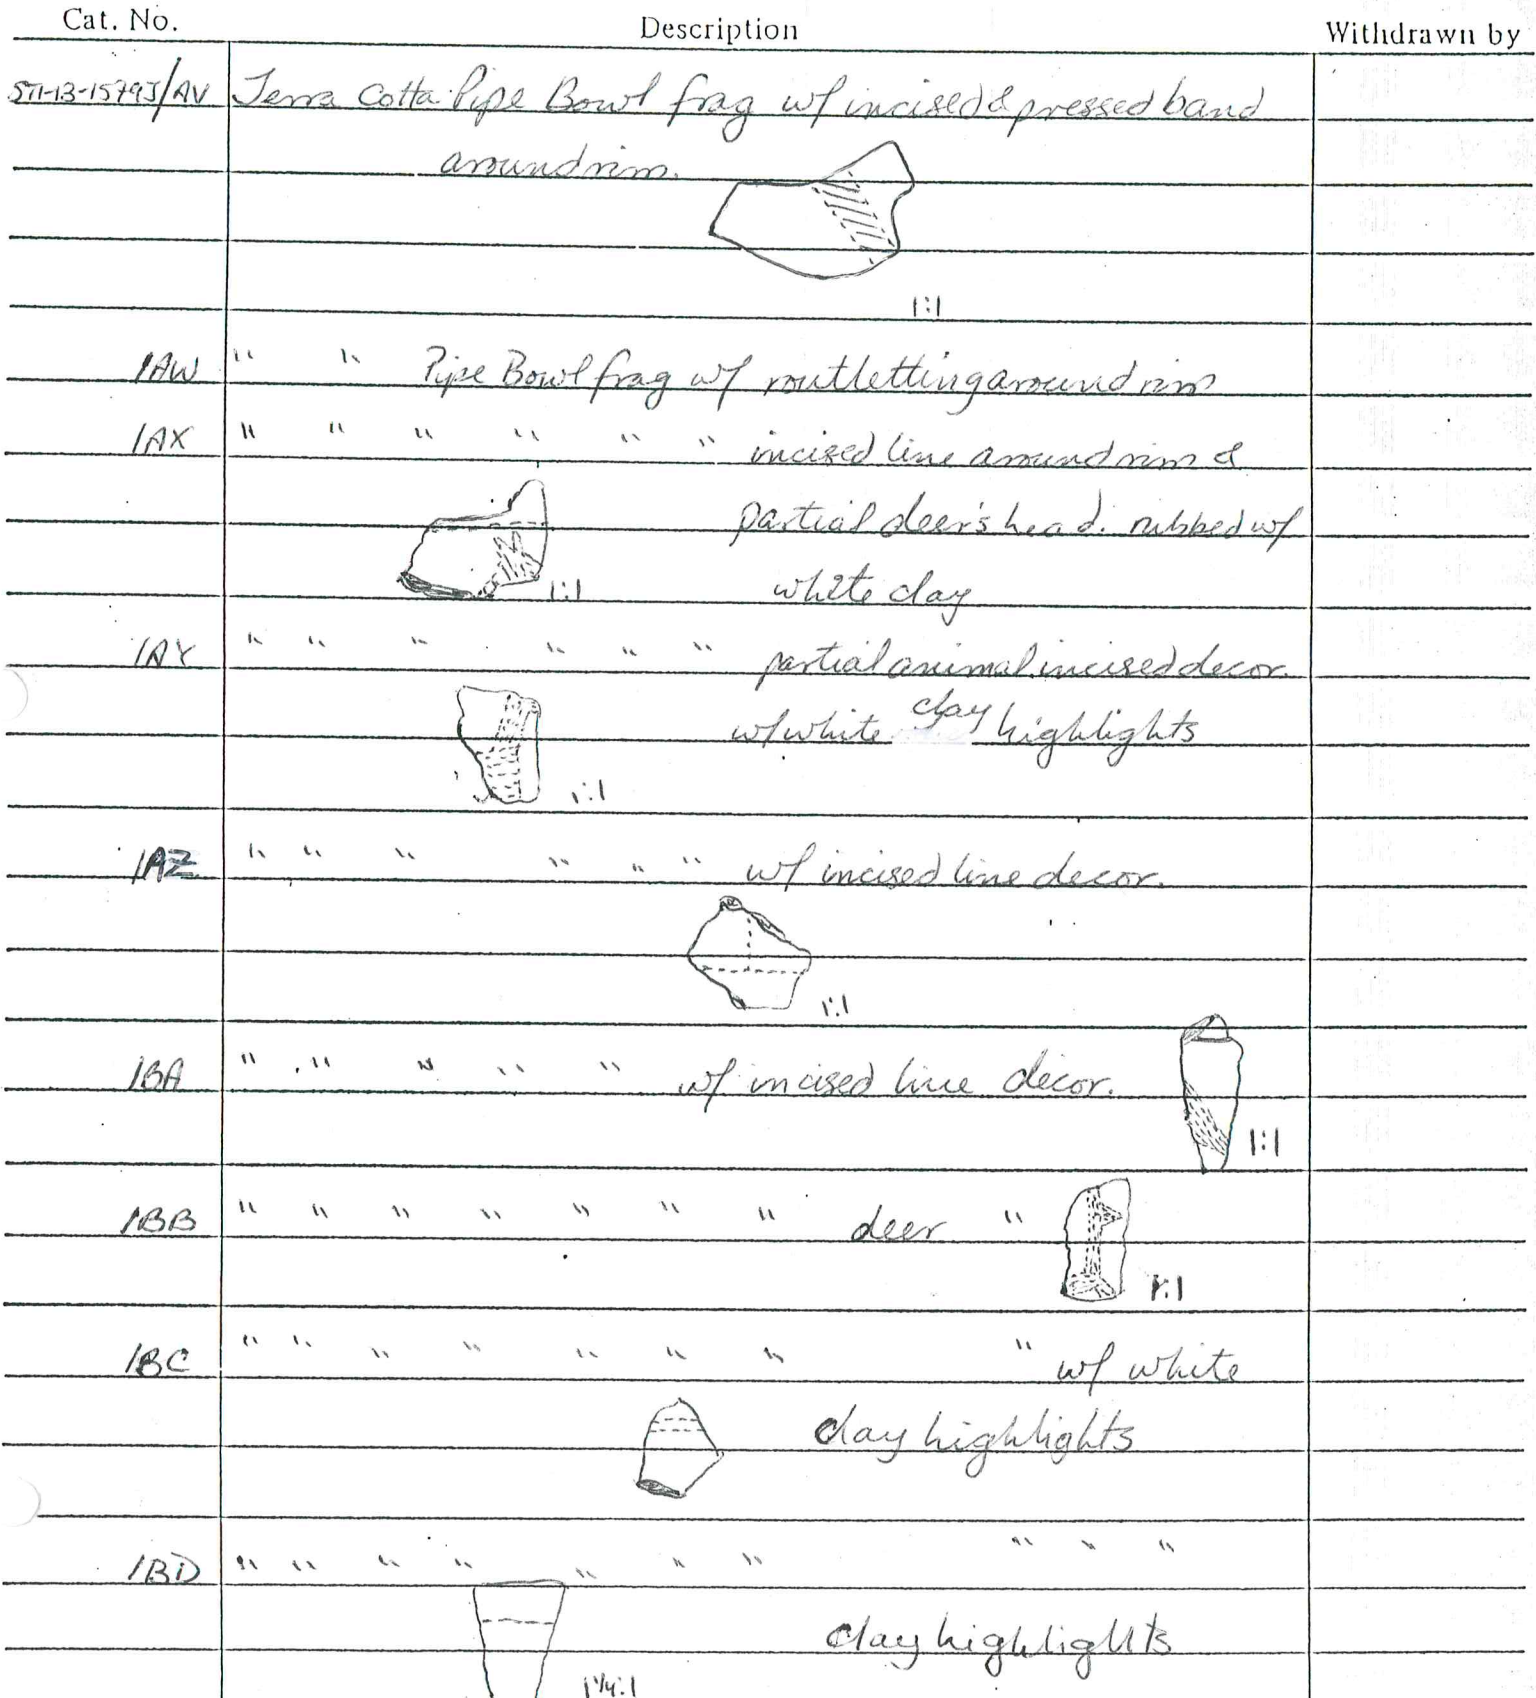 Cat. No. Description Withdrawn by
ST1-13-1579J/AV Terra Cotta Pipe Bowl frag w/ incised & pressed band
around rim.
1:1
/AW " " Pipe Bowl frag w/ routletting around rim
/AX " " " " " " incised line around rim &
partial deer's head. rubbed w/
1:1 white clay
/AY " " " " " " partial animal incised decor.
w/ white clay highlights
1:1
/AZ " " " " " " w/ incised line decor.
1:1
/BA " " " " " w/ incised line decor.
1:1
/BB " " " " " " " deer "
1:1
/BC " " " " " " " " w/ white
clay highlights
/BD " " " " " " " " " "
clay highlights
1¼:1